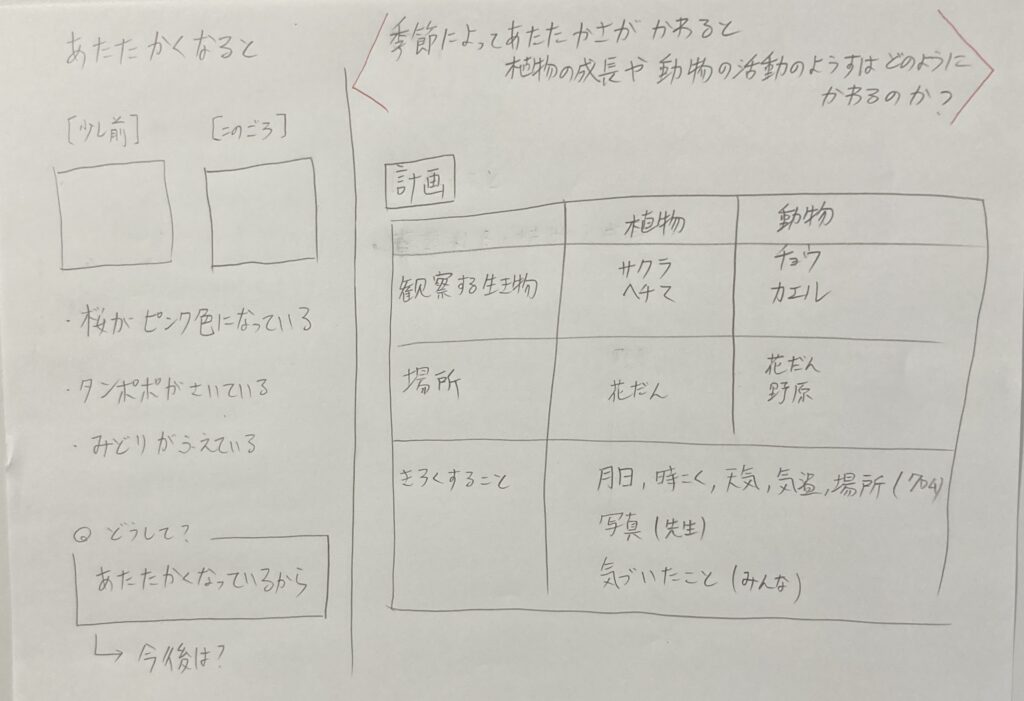 あたたかくなると
[少し前] [このごろ]
・桜がピンク色になっている
・タンポポがさいている
・みどりがふえている
どうして?
あたたかくなっているから
↳ 今後は?
季節によってあたたかさが かわると
植物の成長や 動物の活動のようすは どのように
かわるのか?
計画
植物 動物
観察する生き物
サクラ
ヘチマ
チョウ
カエル
場所
花だん
花だん
野原
きろくすること
月日, 時こく, 天気, 気温, 場所 ( )
写真 (先生)
気づいたこと (みんな)